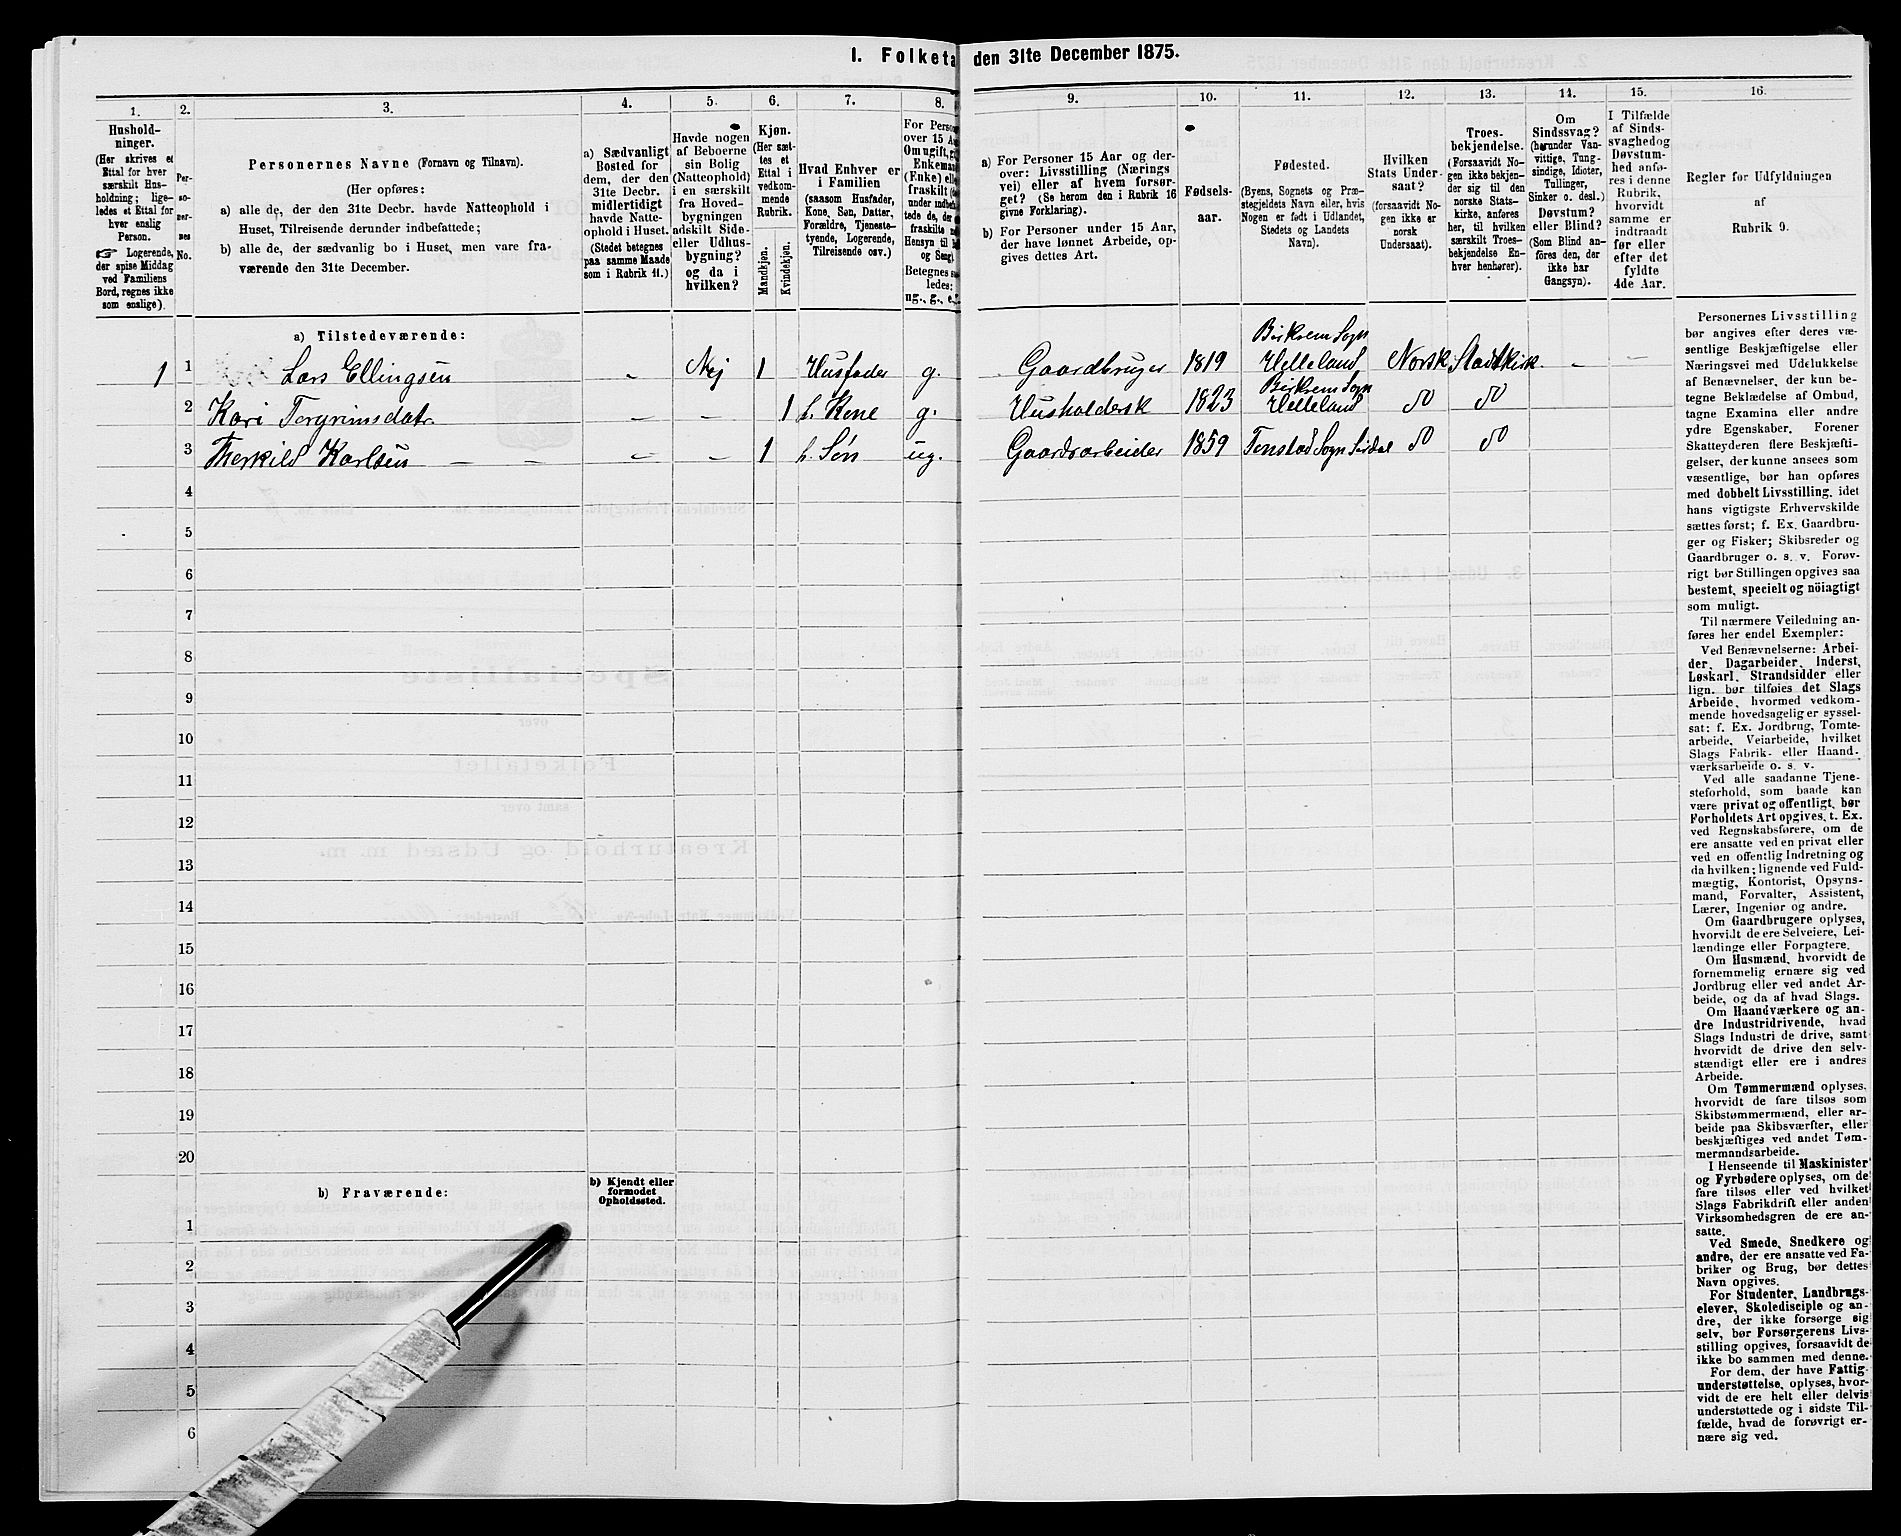 I. Folketa den 31te December 1875.
1.
2.
3.
4.
5.
6.
7.
8.
9.
10.
11.
12.
13.
14.
15.
16.
Hushold-
ninger.
(Her skrives et
Ettal for hver
særskilt Hus-
holdning; lige-
ledes et Ettal for
hver enslig
Person.
☞ Logerende,
der spise Middag
ved Familiens
Bord, regnes ikke
som enslige).
Per-
so-
ner-
nes
No.
Personernes Navne (Fornavn og Tilnavn).
(Her opføres:
a) alle de, der den 31te Decbr. havde Natteophold i
Huset, Tilreisende derunder indbefattede;
b) alle de, der sædvanlig bo i Huset, men vare fra-
værende den 31te December.
a) Sædvanligt
Bosted for
dem, der den
31te Decbr.
midlertidigt
havde Natte-
ophold i Huset.
(Stedet betegnes
paa samme Maade
som i Rubrik 11.)
Havde nogen
af Beboerne
sin Bolig
(Natteophold)
i en særskilt
fra Hoved-
bygningen
adskilt Side-
eller Udhus-
bygning?
og da i
hvilken?
Kjøn.
(Her sæt-
tes et
Ettal i
vedkom-
mende
Rubrik.
Mandkjøn.
Kvindekjøn.
Hvad Enhver er
i Familien
(saasom Husfader,
Kone, Søn, Datter,
Forældre, Tjeneste-
tyende, Logerende,
Tilreisende osv.)
For Perso
over 15 Aa
Om ugift, g
Enkeman
(Enke) elle
fraskilt (
under indbe
tede de, der
fraskilte
Hensyn til
og Seng).
Betegnes s
ledes:
ug., g., e.
a) For Personer 15 Aar og der-
over: Livsstilling (Nærings
vei) eller af hvem forsør-
get? (Se herom den i Rubrik 16
givne Forklaring).
b) For Personer under 15 Aar,
der have lønnet Arbeide, op-
gives dettes Art.
Fødsels-
aar.
Fødested.
(Byens, Sognets og Præ-
stegjeldets Navn eller, hvis
Nogen er født i Udlandet,
Stedets og Landets
Navn).
Hvilken
Stats Under-
saat?
(forsaavidt No-
gen ikke er
norsk
Undersaat).
Troes-
bekjendelse.
(Forsaavidt No-
gen ikke bekjen-
der sig til den
norske Stats-
kirke, anføres
her, til hvilken
særskilt Troes-
bekjendelse En-
hver henhører).
Om
Sindssvag?
(herunder Van-
vittige, Tung-
sindige, Idioter,
Tullinger,
Sinker o. desl.)
Døvstum?
eller Blind?
(Som Blind an-
føres den, der
ikke har
Gangsyn).
I Tilfælde
af Sinds-
svaghed og
Døvstum-
hed anfø-
res i denne
Rubrik,
hvorvidt
samme er
indtraadt
før eller
efter det
fyldte
4de Aar.
Regler for Udfyldningen
af
Rubrik 9.
a) Tilstedeværende:
1 1 Lars Ellingsen - Nej 1 Husfader g. Gaardbruger 1819 Birkrem Sogn Helleland Norsk Statskirk. - -
2 Kari Torgrimsdatr. - - 1 h. Kone g. Husholdersk 1823 Birkrem Sogn Helleland do do
3 Therkild Karlsen - - - - 1 h. Søn ug. Gaardsarbeider 1859 Tonstad Sogn Sirdal do do
4
5
6
7
8
9
10
11
12
13
14
15
16
17
18
19
20
b) Fraværende:
b) Kjendt eller
formodet
Opholdssted.
1
2
3
4
5
6
Personernes Livsstilling
bør angives efter deres væ-
sentlige Beskjæftigelse eller
Næringsvei med Udelukkelse
af Benævnelser, der kun be-
tegne Beklædelse af Ombud,
tagne Examina eller andre
ydre Egenskaber. Forener
Skatteyderen flere Beskjæfti-
gelser, der kunne ansees som
væsentlige, bør han opføres
med dobbelt Livsstilling, idet
hans vigtigste Erhvervskilde
sættes først; f. Ex. Gaardbru-
ger og Fisker; Skibsreder og
Gaardbruger o. s. v. Forøv-
rigt bør Stillingen opgives saa
bestemt, specielt og nöiagtigt
som muligt.
Til nærmere Veiledning an-
føres her endel Exempler:
Ved Benævnelserne: Arbei-
der, Dagarbeider, Inderst,
Løskarl, Strandsidder eller
lign. bør tilføies det Slags
Arbeide, hvormed vedkom-
mende hovedsagelig er syssel-
sat: f. Ex. Jordbrug, Tomte-
arbeide, Veiarbeide, hvilket
Slags Fabrik- eller Haand-
værksarbeide o. s. v.
Ved alle saadanne Tjene-
steforhold, som baade kan
være privat og offentligt, bør
Forholdets Art opgives, t. Ex.
ved Regnskabsførere, om de
ere ansatte ved en privat eller
ved en offentlig Indretning og
da hvilken; lignende ved Fuld-
mægtig, Kontorist, Opsyns-
mand, Forvalter, Assistent,
Lærer, Ingeniør og andre.
Om Gaardbrugere oplyses,
hvorvidt de ere Selveiere, Lei-
lændinge eller Forpagtere.
Om Husmænd, hvorvidt de
fornemmelig ernære sig ved
Jordbrug eller ved andet Ar-
beide, og da af hvad Slags.
Om Haandværkere og an-
dre Industridrivende, hvad
Slags Industri de drive, samt
hvorvidt de drive den selv-
stændigt eller ere i andres
Arbeide.
Om Tømmermænd oplyses,
hvorvidt de fare tilsøs som
Skibstømmermænd, eller ar-
beide paa Skibsværfter, eller
beskjæftiges ved andet Tøm-
mermandsarbeide.
I Henseende til Maskinister
og Fyrbødere oplyses, om de
fare tilsøs eller ved hvilket
Slags Fabrikdrift eller anden
Virksomhedsgren de ere an-
satte.
Ved Smede, Snedkere og
andre, der ere ansatte ved Fa-
briker og Brug, bør dettes
Navn opgives.
For Studenter, Landbrugs-
elever, Skoledisciple og an-
dre, der ikke forsørge sig
selv, bør Forsørgerens Livs-
stilling opgives, forsaavidt de
ikke bo sammen med denne.
For dem, der have Fattig-
understøttelse, oplyses, hvor-
vidt de ere helt eller delvis
understøttede og i sidste Til-
fælde, hvad de forøvrigt er-
nære sig ved.